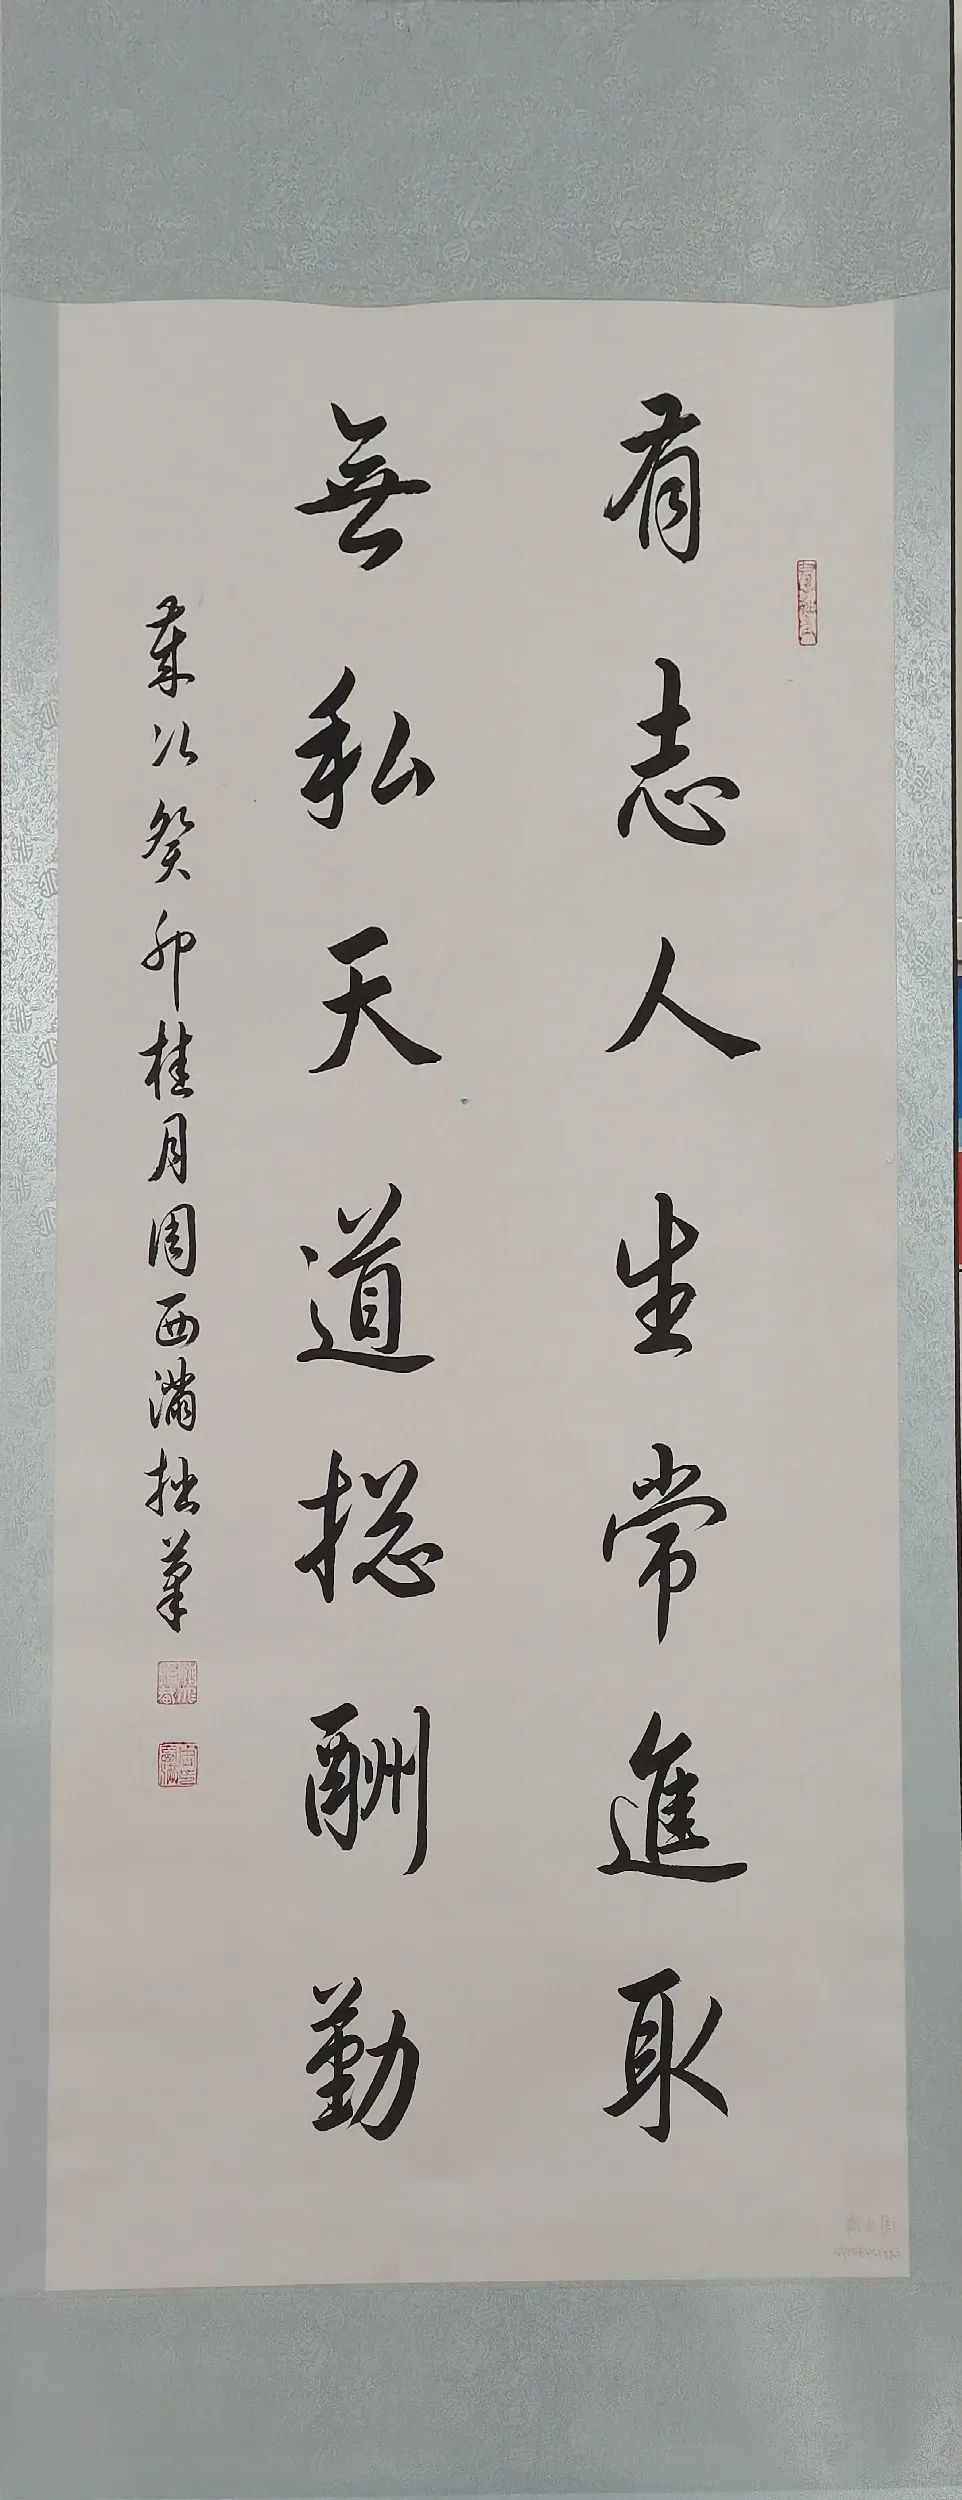 有志人生常進取
無私天道摠酬勤
歲次癸卯桂月周西满拙筆